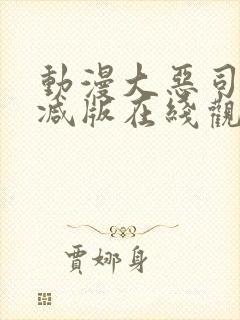 動漫大惡司
減版在綫觀
賈娜身